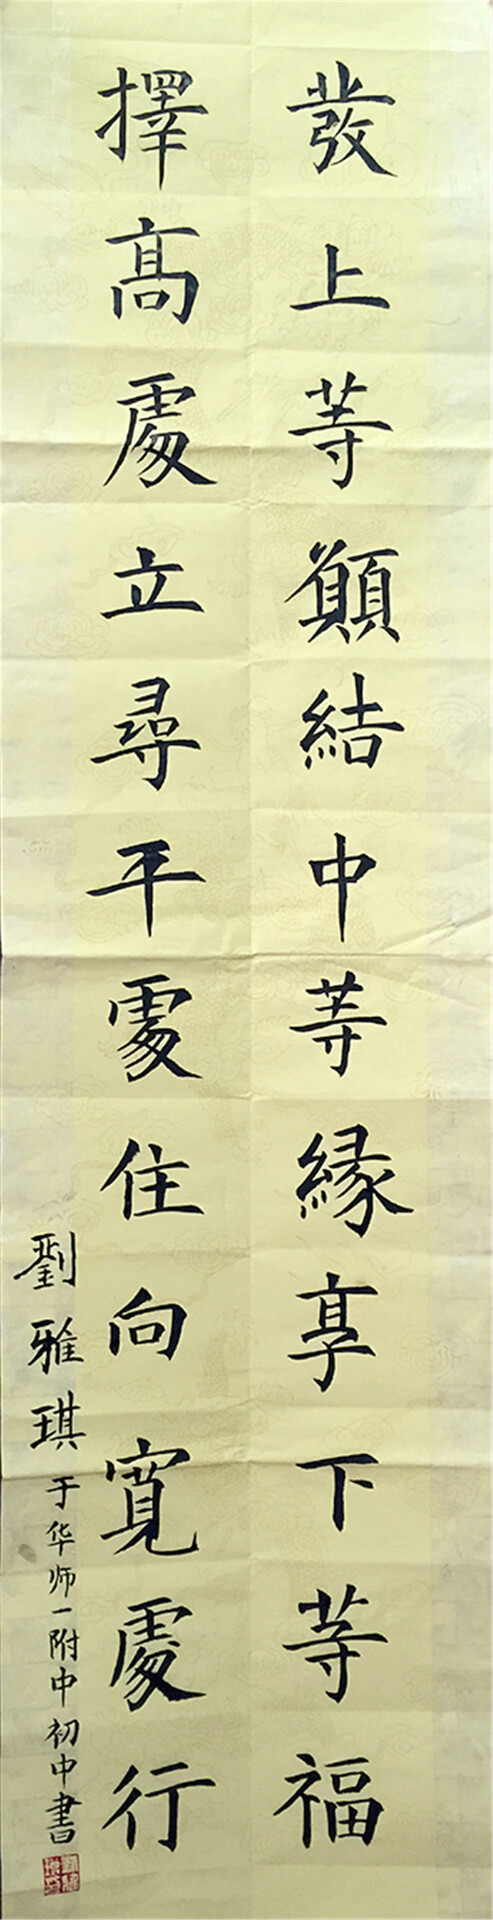 發上等願結中等緣享下等福
擇高處立尋平處住向寬處行
劉雅琪于华师一附中初中書